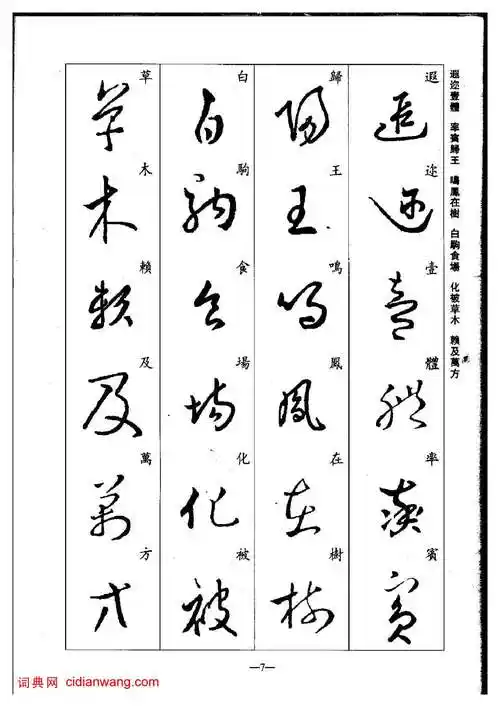 遐迩壹體 率賓歸王 鳴鳳在樹 白駒食場 化被草木 賴及萬方
遐迩壹體率賓
歸王鳴鳳在樹
白駒食場化被
草木賴及萬方
—7—
词典网 cidianwang.com